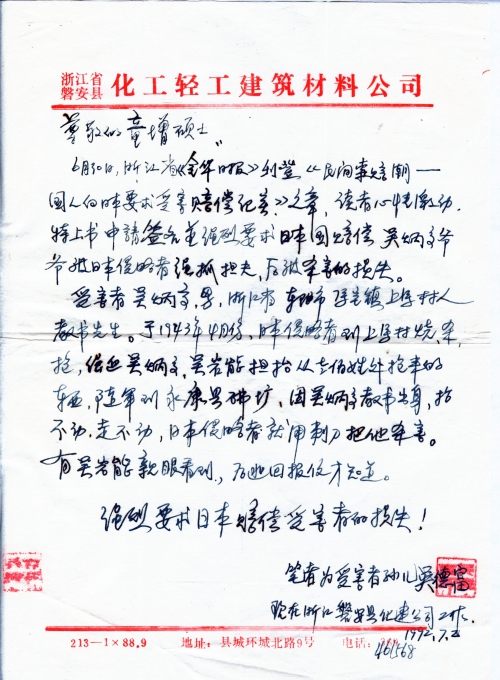 浙江省
磐安县 化工轻工建筑材料公司
尊敬的童增硕士：
6月30日,浙江省《金华日报》刊登《民间索赔潮—
国人向日本要求受害赔偿纪实》文章,读者心情激动.
特上书申请签名并强烈要求日本国赔偿吴炳文爷
爷被日本侵略者强抓担夫,后被杀害的损失。
受害者吴炳文,男,浙江省东阳市 镇上 村人
教书先生。于1943年4月份,日本侵略者到上 村烧、杀、
抢,强迫吴炳文、吴岩能担抬从老百姓处抢来的
东西,随军到永康县 ,因吴炳文教书出身,抬
不动,走不动,日本侵略者就用刺刀把他杀害。
有吴岩能亲眼看到,后逃回报信才知道。
强烈要求日本赔偿受害者的损失!
笔者为受害者孙儿吴德富
现在浙江磐安县化建公司工作.
1992.7.2
213—1×88.9 地址：县城环城北路9号 电话：
461568